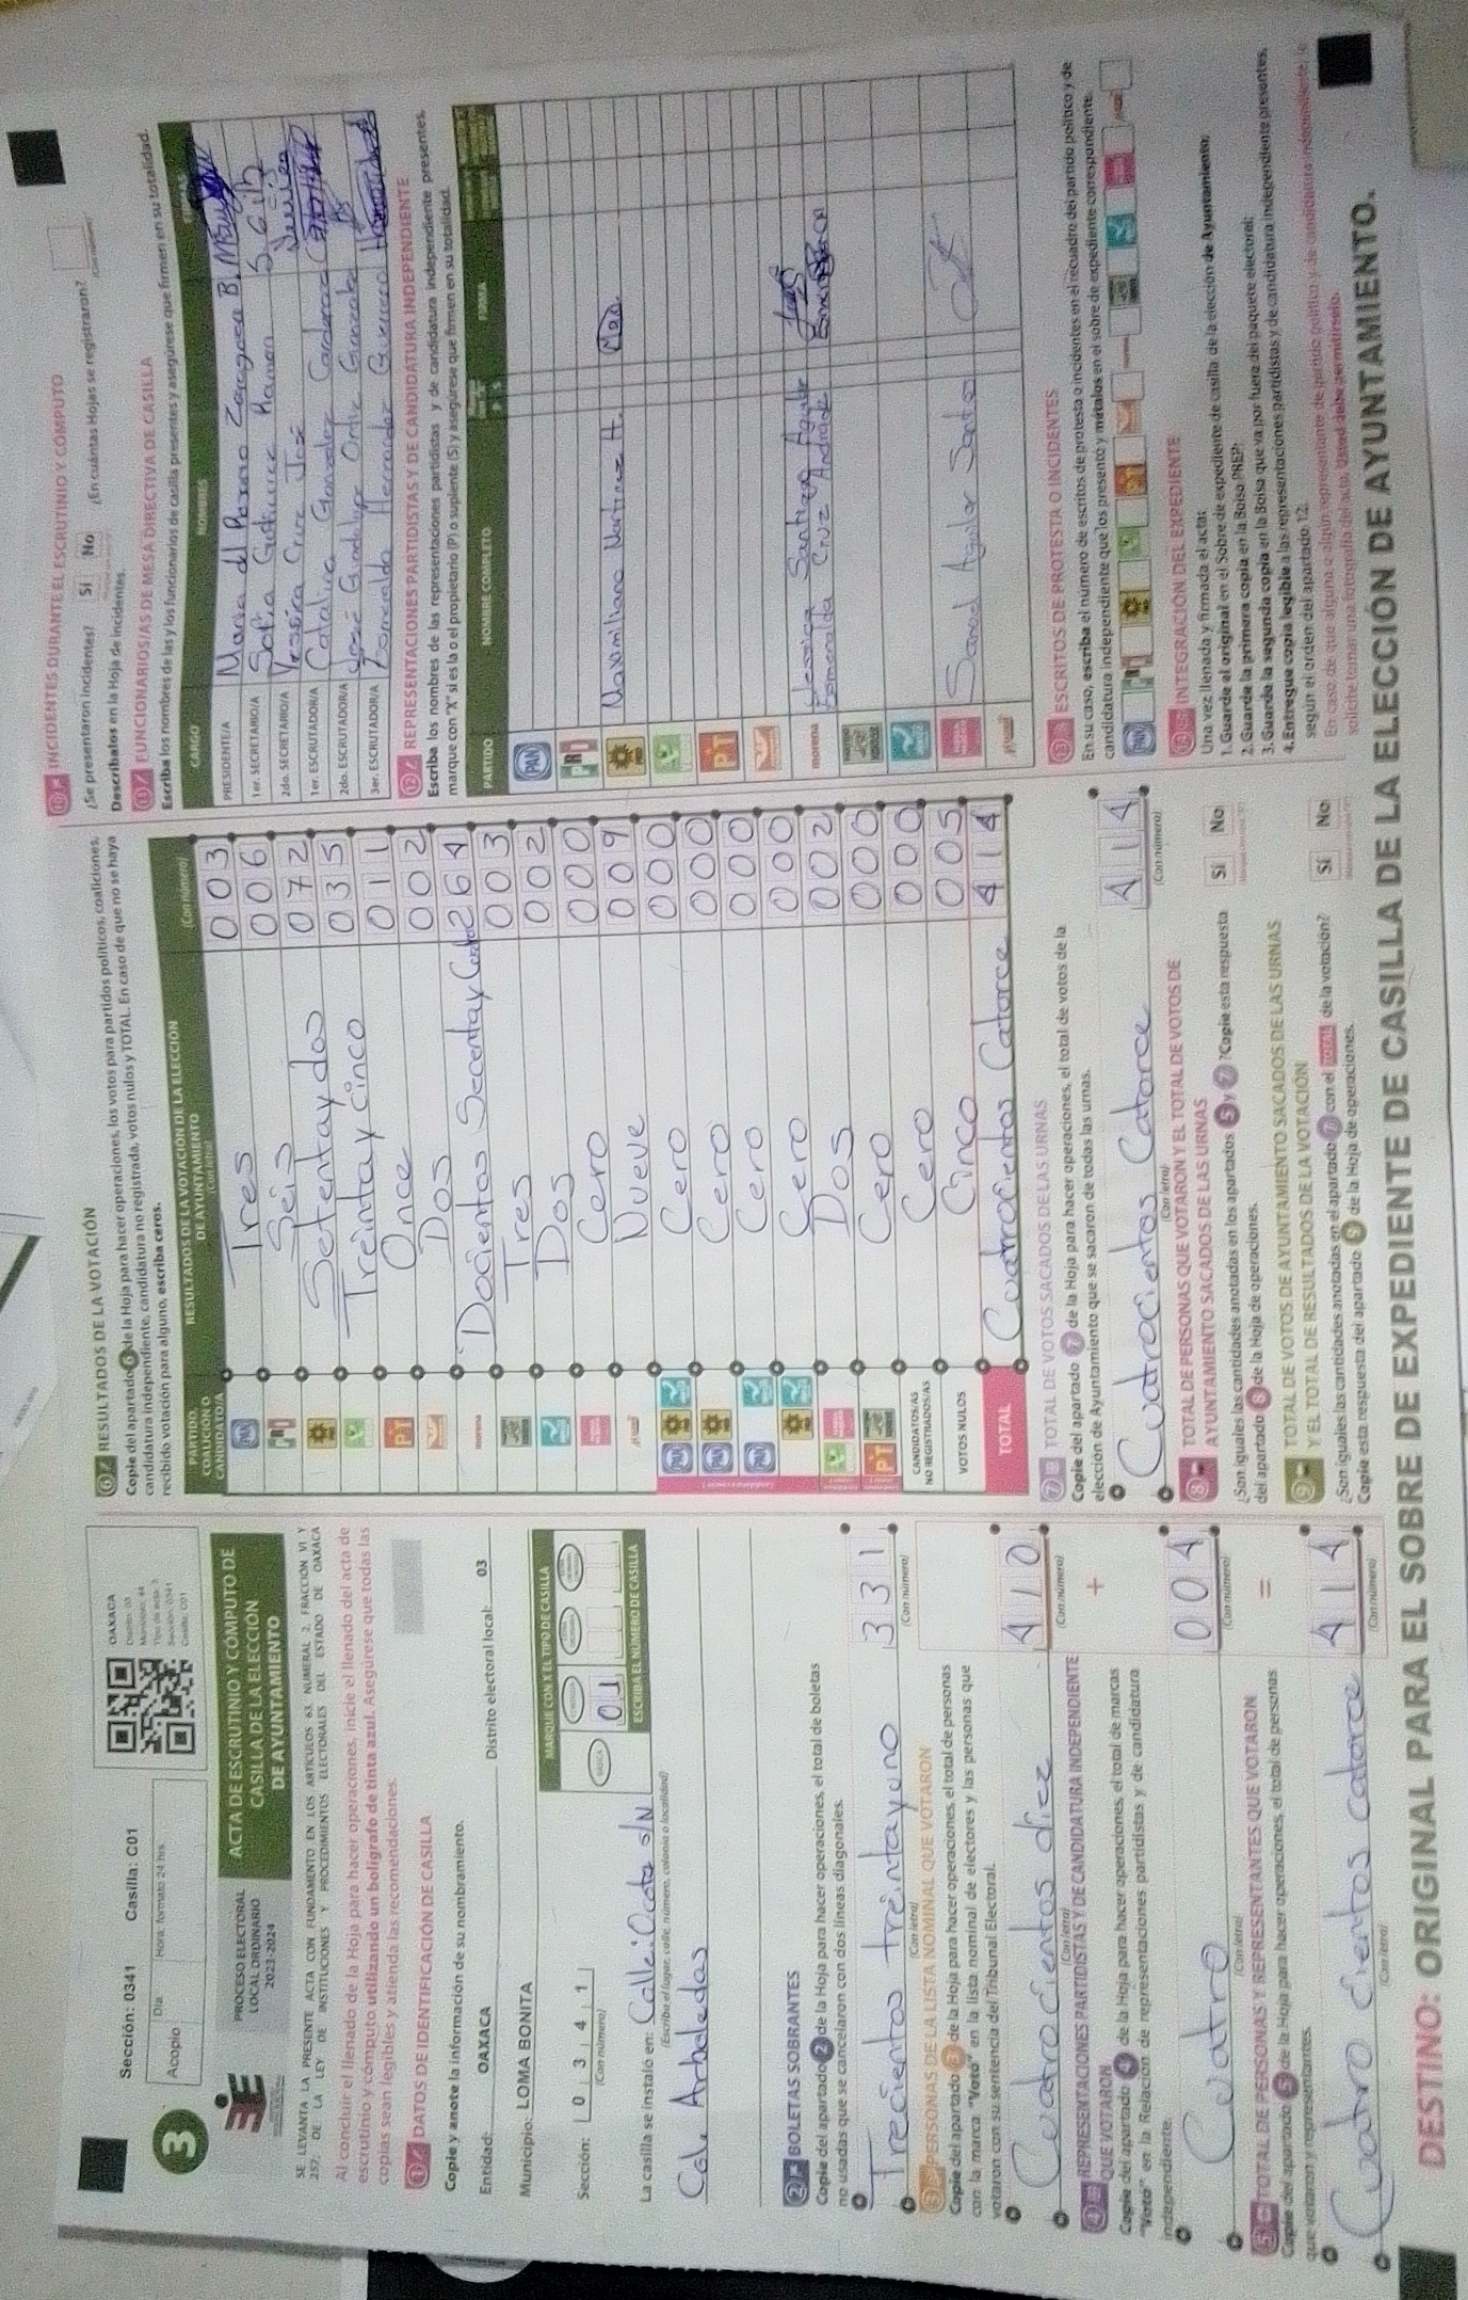 Sección: 0341 Casilla: C01
Acopio
Día
Hora: formato 24 hrs
OAXACA
3
PROCESO ELECTORAL
LOCAL ORDINARIO
2023-2024
ACTA DE ESCRUTINIO Y CÓMPUTO DE
CASILLA DE LA ELECCIÓN
DE AYUNTAMIENTO
SE LEVANTA LA PRESENTE ACTA CON FUNDAMENTO EN LOS ARTÍCULOS 63, NUMERAL 2, FRACCIÓN VI Y
257; DE LA LEY DE INSTITUCIONES Y PROCEDIMIENTOS ELECTORALES DEL ESTADO DE OAXACA
Al concluir el llenado de la Hoja para hacer operaciones, inicie el llenado del acta de
escrutinio y cómputo utilizando un bolígrafo de tinta azul. Asegúrese que todas las
copias sean legibles y atienda las recomendaciones.
1 DATOS DE IDENTIFICACIÓN DE CASILLA
Copie y anote la información de su nombramiento.
Entidad: OAXACA Distrito electoral local: 03
Municipio: LOMA BONITA
Sección: 0 3 4 1
(Con número)
MARQUE CON X EL TIPO DE CASILLA
01
ESCRIBA EL NÚMERO DE CASILLA
La casilla se instaló en: Calle: Ocote s/N
(Escriba el lugar, calle, número, colonia o localidad)
Col. Arboledas
2 BOLETAS SOBRANTES
Copie del apartado 2 de la Hoja para hacer operaciones, el total de boletas
no usadas que se cancelaron con dos líneas diagonales.
Trecientos treintayuno 331
(Con letra) (Con número)
3 PERSONAS DE LA LISTA NOMINAL QUE VOTARON
Copie del apartado 3 de la Hoja para hacer operaciones, el total de personas
con la marca "Votó" en la lista nominal de electores y las personas que
votaron con su sentencia del Tribunal Electoral.
Cuatrocientos diez 410
(Con letra) (Con número)
4 REPRESENTACIONES PARTIDISTAS Y DE CANDIDATURA INDEPENDIENTE
QUE VOTARON
Copie del apartado 4 de la Hoja para hacer operaciones, el total de marcas
"Votó" en la Relación de representaciones partidistas y de candidatura
independiente.
+
Cuatro 004
(Con letra) (Con número)
5 TOTAL DE PERSONAS Y REPRESENTANTES QUE VOTARON
Copie del apartado 5 de la Hoja para hacer operaciones, el total de personas
que votaron y representantes.
=
Cuatro cientos catorce 414
(Con letra) (Con número)
6 RESULTADOS DE LA VOTACIÓN
Copie del apartado 6 de la Hoja para hacer operaciones, los votos para partidos políticos, coaliciones,
candidatura independiente, candidatura no registrada, votos nulos y TOTAL. En caso de que no se haya
recibido votación para alguno, escriba ceros.
PARTIDO,
COALICIÓN O
CANDIDATO/A
RESULTADOS DE LA VOTACIÓN DE LA ELECCIÓN
DE AYUNTAMIENTO
(Con letra) (Con número)
PAN Tres 003
PRI Seis 006
Setentaydos 072
Treintaycinco 035
PT Once 011
Dos 002
morena Docientos Secentay Cuatro 264
Tres 003
Dos 002
Cero 000
Nueve 009
PAN Cero 000
PAN Cero 000
PAN Cero 000
Cero 000
Dos 002
PT Cero 000
CANDIDATOS/AS
NO REGISTRADOS/AS Cero 000
VOTOS NULOS Cinco 005
TOTAL Cuatrocientos Catorce 414
7 TOTAL DE VOTOS SACADOS DE LAS URNAS
Copie del apartado 7 de la Hoja para hacer operaciones, el total de votos de la
elección de Ayuntamiento que se sacaron de todas las urnas.
Cuatrocientos Catorce 414
(Con letra) (Con número)
8 TOTAL DE PERSONAS QUE VOTARON Y EL TOTAL DE VOTOS DE
AYUNTAMIENTO SACADOS DE LAS URNAS
¿Son iguales las cantidades anotadas en los apartados 5 y 7? Copie esta respuesta
del apartado 8 de la Hoja de operaciones.
Sí No
9 TOTAL DE VOTOS DE AYUNTAMIENTO SACADOS DE LAS URNAS
Y EL TOTAL DE RESULTADOS DE LA VOTACIÓN
¿Son iguales las cantidades anotadas en el apartado 7 con el TOTAL de la votación?
Copie esta respuesta del apartado 9 de la Hoja de operaciones.
Sí No
10 INCIDENTES DURANTE EL ESCRUTINIO Y CÓMPUTO
¿Se presentaron incidentes? Sí No ¿En cuántas Hojas se registraron?
Descríbalos en la Hoja de incidentes.
11 FUNCIONARIOS/AS DE MESA DIRECTIVA DE CASILLA
Escriba los nombres de las y los funcionarios de casilla presentes y asegúrese que firmen en su totalidad.
CARGO NOMBRES
PRESIDENTE/A Maria del Rosario Zaragosa B.
1er. SECRETARIO/A Sofia Gutierrez Ramon
2do. SECRETARIO/A Yessica Cruz José
1er. ESCRUTADOR/A Catalina Gonzalez Cardenas
2do. ESCRUTADOR/A José Guadalupe Ortiz Gonzalez
3er. ESCRUTADOR/A Esmeralda Hernandez Guerrero
12 REPRESENTACIONES PARTIDISTAS Y DE CANDIDATURA INDEPENDIENTE
Escriba los nombres de las representaciones partidistas y de candidatura independiente presentes,
marque con "X" si es la o el propietario (P) o suplente (S) y asegúrese que firmen en su totalidad.
PARTIDO NOMBRE COMPLETO FIRMA
PAN
PRI
Maximiliano Martinez H.
PT
morena Yessica Santiago Aguilar
Esmeralda Cruz Andrade
Samuel Aguilar Santos
13 ESCRITOS DE PROTESTA O INCIDENTES
En su caso, escriba el número de escritos de protesta o incidentes en el recuadro del partido político y de
candidatura independiente que los presentó y métalos en el sobre de expediente correspondiente.
14 INTEGRACIÓN DEL EXPEDIENTE
Una vez llenada y firmada el acta:
1. Guarde el original en el Sobre de expediente de casilla de la elección de Ayuntamiento;
2. Guarde la primera copia en la Bolsa PREP;
3. Guarde la segunda copia en la Bolsa que va por fuera del paquete electoral;
4. Entregue copia legible a las representaciones partidistas y de candidatura independiente presentes,
según el orden del apartado 12.
En caso de que alguna o algún representante de partido político y de candidatura independiente le
solicite tomar una fotografía del acta, usted debe permitírselo.
DESTINO: ORIGINAL PARA EL SOBRE DE EXPEDIENTE DE CASILLA DE LA ELECCIÓN DE AYUNTAMIENTO.